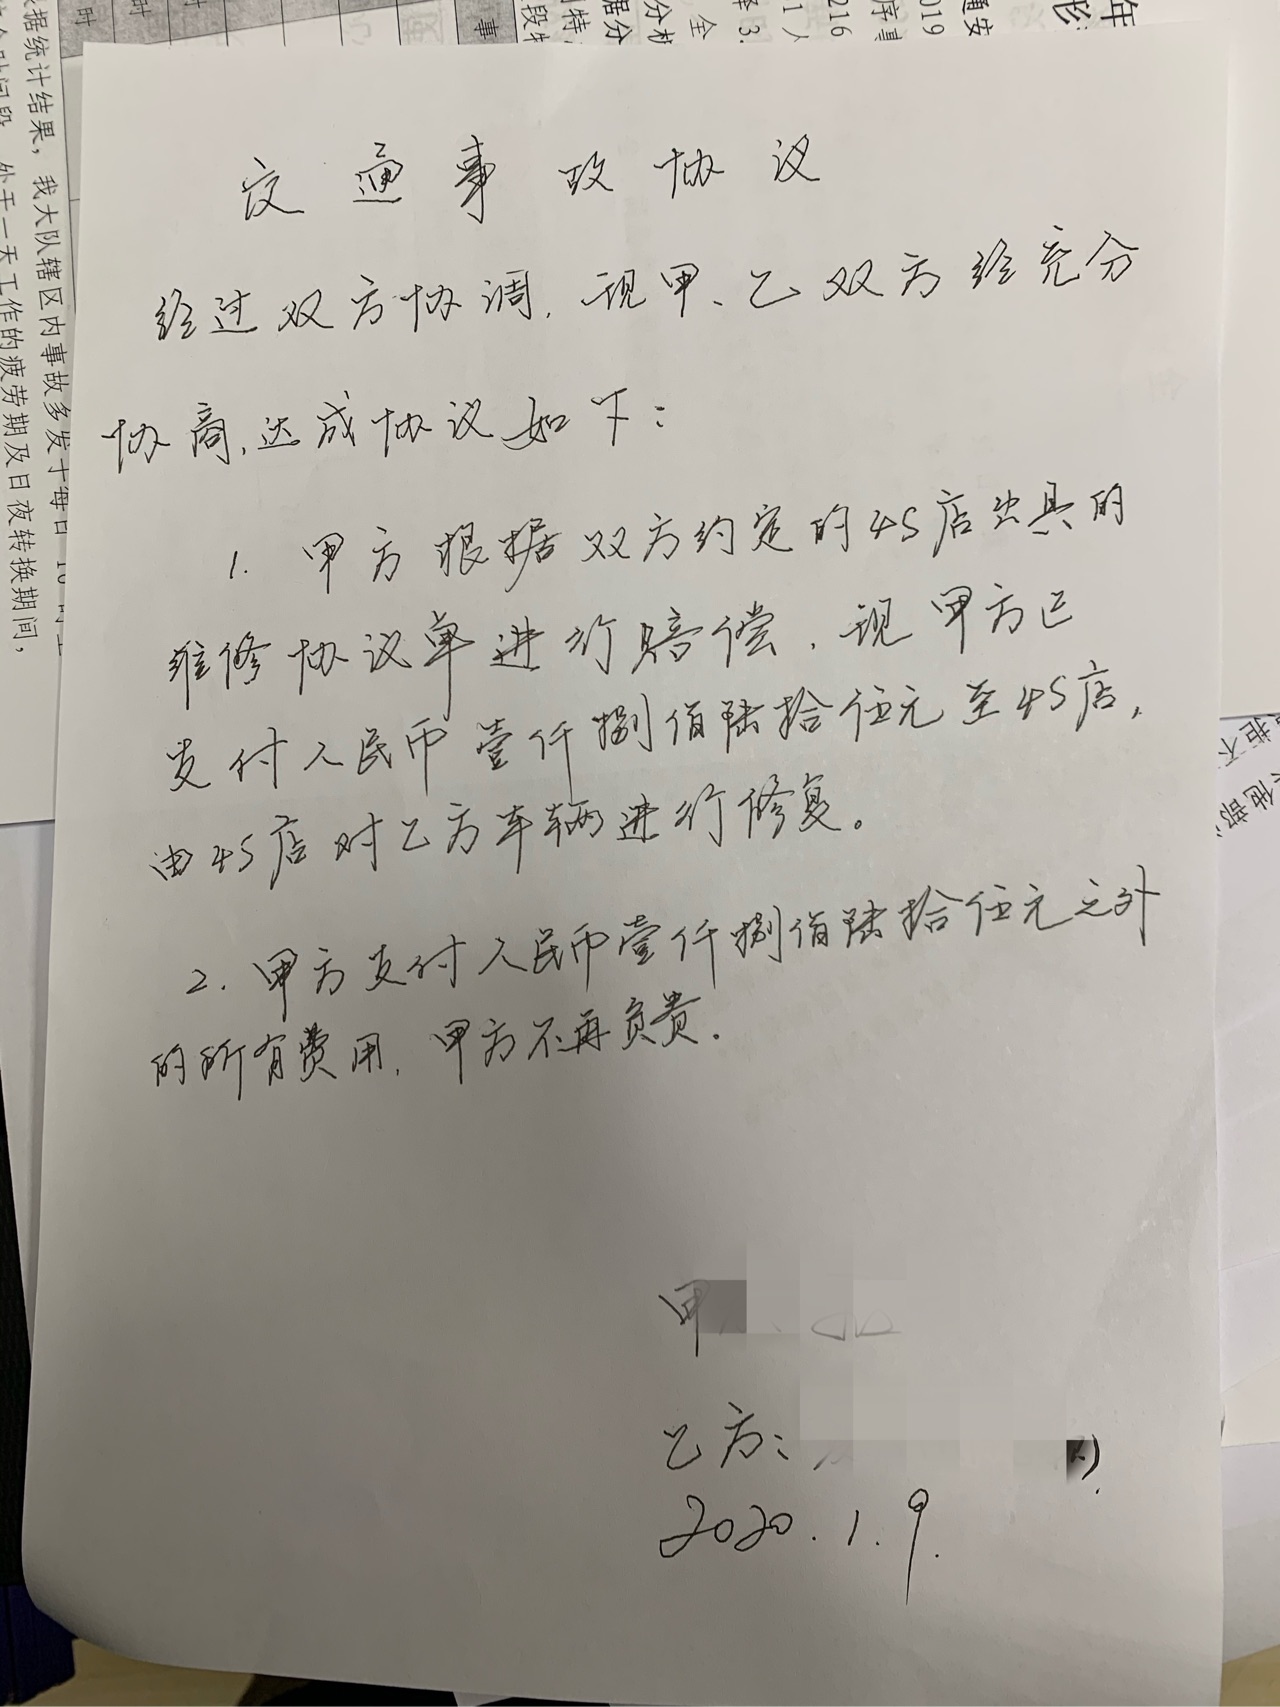 交通事故协议
经过双方协调，现甲、乙双方经充分
协商，达成协议如下：
1. 甲方根据双方约定的4S店出具的
维修协议单进行赔偿，现甲方已
支付人民币壹仟捌佰陆拾伍元至4S店，
由4S店对乙方车辆进行修复。
2. 甲方支付人民币壹仟捌佰陆拾伍元之外
的所有费用，甲方不再负责。
甲
乙方：
2020.1.9.
数据统计结果，我大队辖区内事故多发于每日
处于一天工作的疲劳期及日夜转换期间，